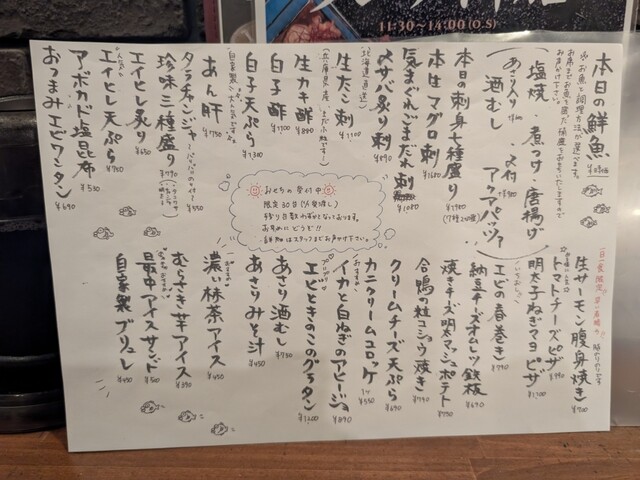 11:30〜14:00(O.S)
本日の鮮魚 ¥時価
塩焼・煮つけ・唐揚げ
酒むし アクアパッツァ
本日の刺身七種盛り ¥1980
(7種2切)
本生マグロ刺 ¥1680
気まぐれごまだれ刺 ¥1080
〆サバ炙り刺 ¥890
北海道直送
生たこ刺 ¥1100
生カキ酢 ¥880
白子酢 ¥1100
白子天ぷら ¥1300
あん肝 ¥750
タラチャンジャ ¥550
珍味三種盛り ¥790
エイヒレ炙り ¥650
エイヒレ天ぷら ¥700
アボカド塩昆布 ¥530
おつまみエビワンタン ¥690
おせちの受付中
限定30台
残り台数わずかとなっております。
お早めにどうぞ!!
詳細はスタッフまでお声かけ下さい。
生サーモン腹身焼き ¥700
トマトチーズピザ ¥990
明太子ねぎマヨピザ ¥1,100
エビの春巻き ¥790
納豆チーズオムレツ鉄板 ¥690
焼きチーズ明太マッシュポテト ¥750
合鴨の粒コショウ焼き ¥790
クリームチーズ天ぷら ¥690
カニクリームコロッケ ¥550
おすすめ
イカと白ねぎのアヒージョ ¥890
エビときのこのグラタン ¥1,100
あさり酒むし ¥780
あさりみそ汁 ¥450
濃い抹茶アイス ¥450
むらさき芋アイス ¥390
最中アイスサンド ¥500
自家製ブリュレ ¥450